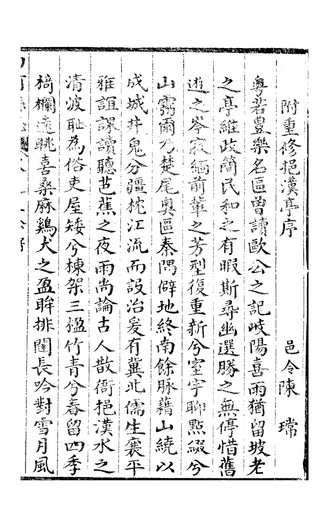 附重修挹漢亭序
邑令陳瑺
粤若豊樂名區曾讀歐公之記岐陽喜雨猶留坡老
之亭維政簡民和之有暇斯尋幽選勝之無停惜舊
遊之岑寂緬前輩之芳型復重新兮室宇聊點綴兮
山靄爾乃楚尾奥區秦隅僻地終南餘脉藉山繞以
成城井鬼分疆枕江流而設治爰有冀北儒生襄平
雅誼課讀聽芭蕉之夜雨尚論古人散衙挹漢水之
清波恥為俗吏屋矮兮棟架三楹竹青兮春留四季
椅欄遠眺喜桑麻鷄犬之盈眸排闥長吟對雪月風